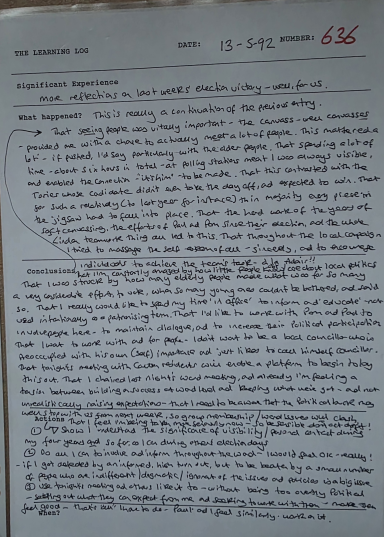 THE LEARNING LOG
DATE: 13-5-92 NUMBER: 636
Significant Experience
more reflections on last week's election victory - well, for us.
What happened? This is really a continuation of the previous entry.
That seeing people was vitally important - The canvass - well canvasses
- provided me with a chance to actually meet a lot of people. This mattered a
lot - if pushed, I'd say particularly with the older people. That spending a lot of
time - about six hours in total - at polling stations meant I was always visible
and enabled the connection - to be made. That this contrasted with the
Tories whose candidate didn't even take the day off, and expected to win. That
for such a relatively (to last year for instance) thin majority every piece in
the jigsaw had to fall into place. That the hard work of the years of
soft canvassing, the efforts of Paul and Pam since their election, and the whole
teamwork thing all led to this. That throughout the local campaign
I tried to massage the self esteem of all - sincerely, and to encourage
individuals to achieve the team's task - did that!!
Conclusions
That I'm constantly amazed by how little people know about local politics
That I was struck by how many elderly people made what was for so many
a very considerable effort to vote, when so many young ones couldn't be bothered, and said
so. That I really would like to spend my time 'in office' to inform and educate - not
used in a patronising term. That I'd like to work with Pam and Paul to
involve people here - to maintain dialogue, and to increase their political participation
That I want to work with and for people - I don't want to be a local councillor who is
preoccupied with his own (self) importance and just likes to call himself councillor.
That tonight's meeting with residents will create a platform to begin to lay
this out. That I chaired last night's ward meeting, and already I'm feeling a
tension between building on success at ward level and keeping what we've got - and not
unrealistically raising expectations - that I need to be aware that the political
with us from next week, so group membership / ward issues will clash
Actions
① I understood the significance of visibility / personal contact during
my four years and so far as I can during other election days
② Do all I can to involve and inform throughout the ward - I would feel OK - really!
- if I got defeated by an informed, high turn out, but to be beaten by a small number
of people who are indifferent / ignorant of the issues and policies is a big issue
③ Use tonight's meeting and others like it to - without being too overtly political
- setting out what they can expect from me and seeking to work with them - make them
feel good - That's what I have to do - Paul and I feel similarly - work on it.
When?